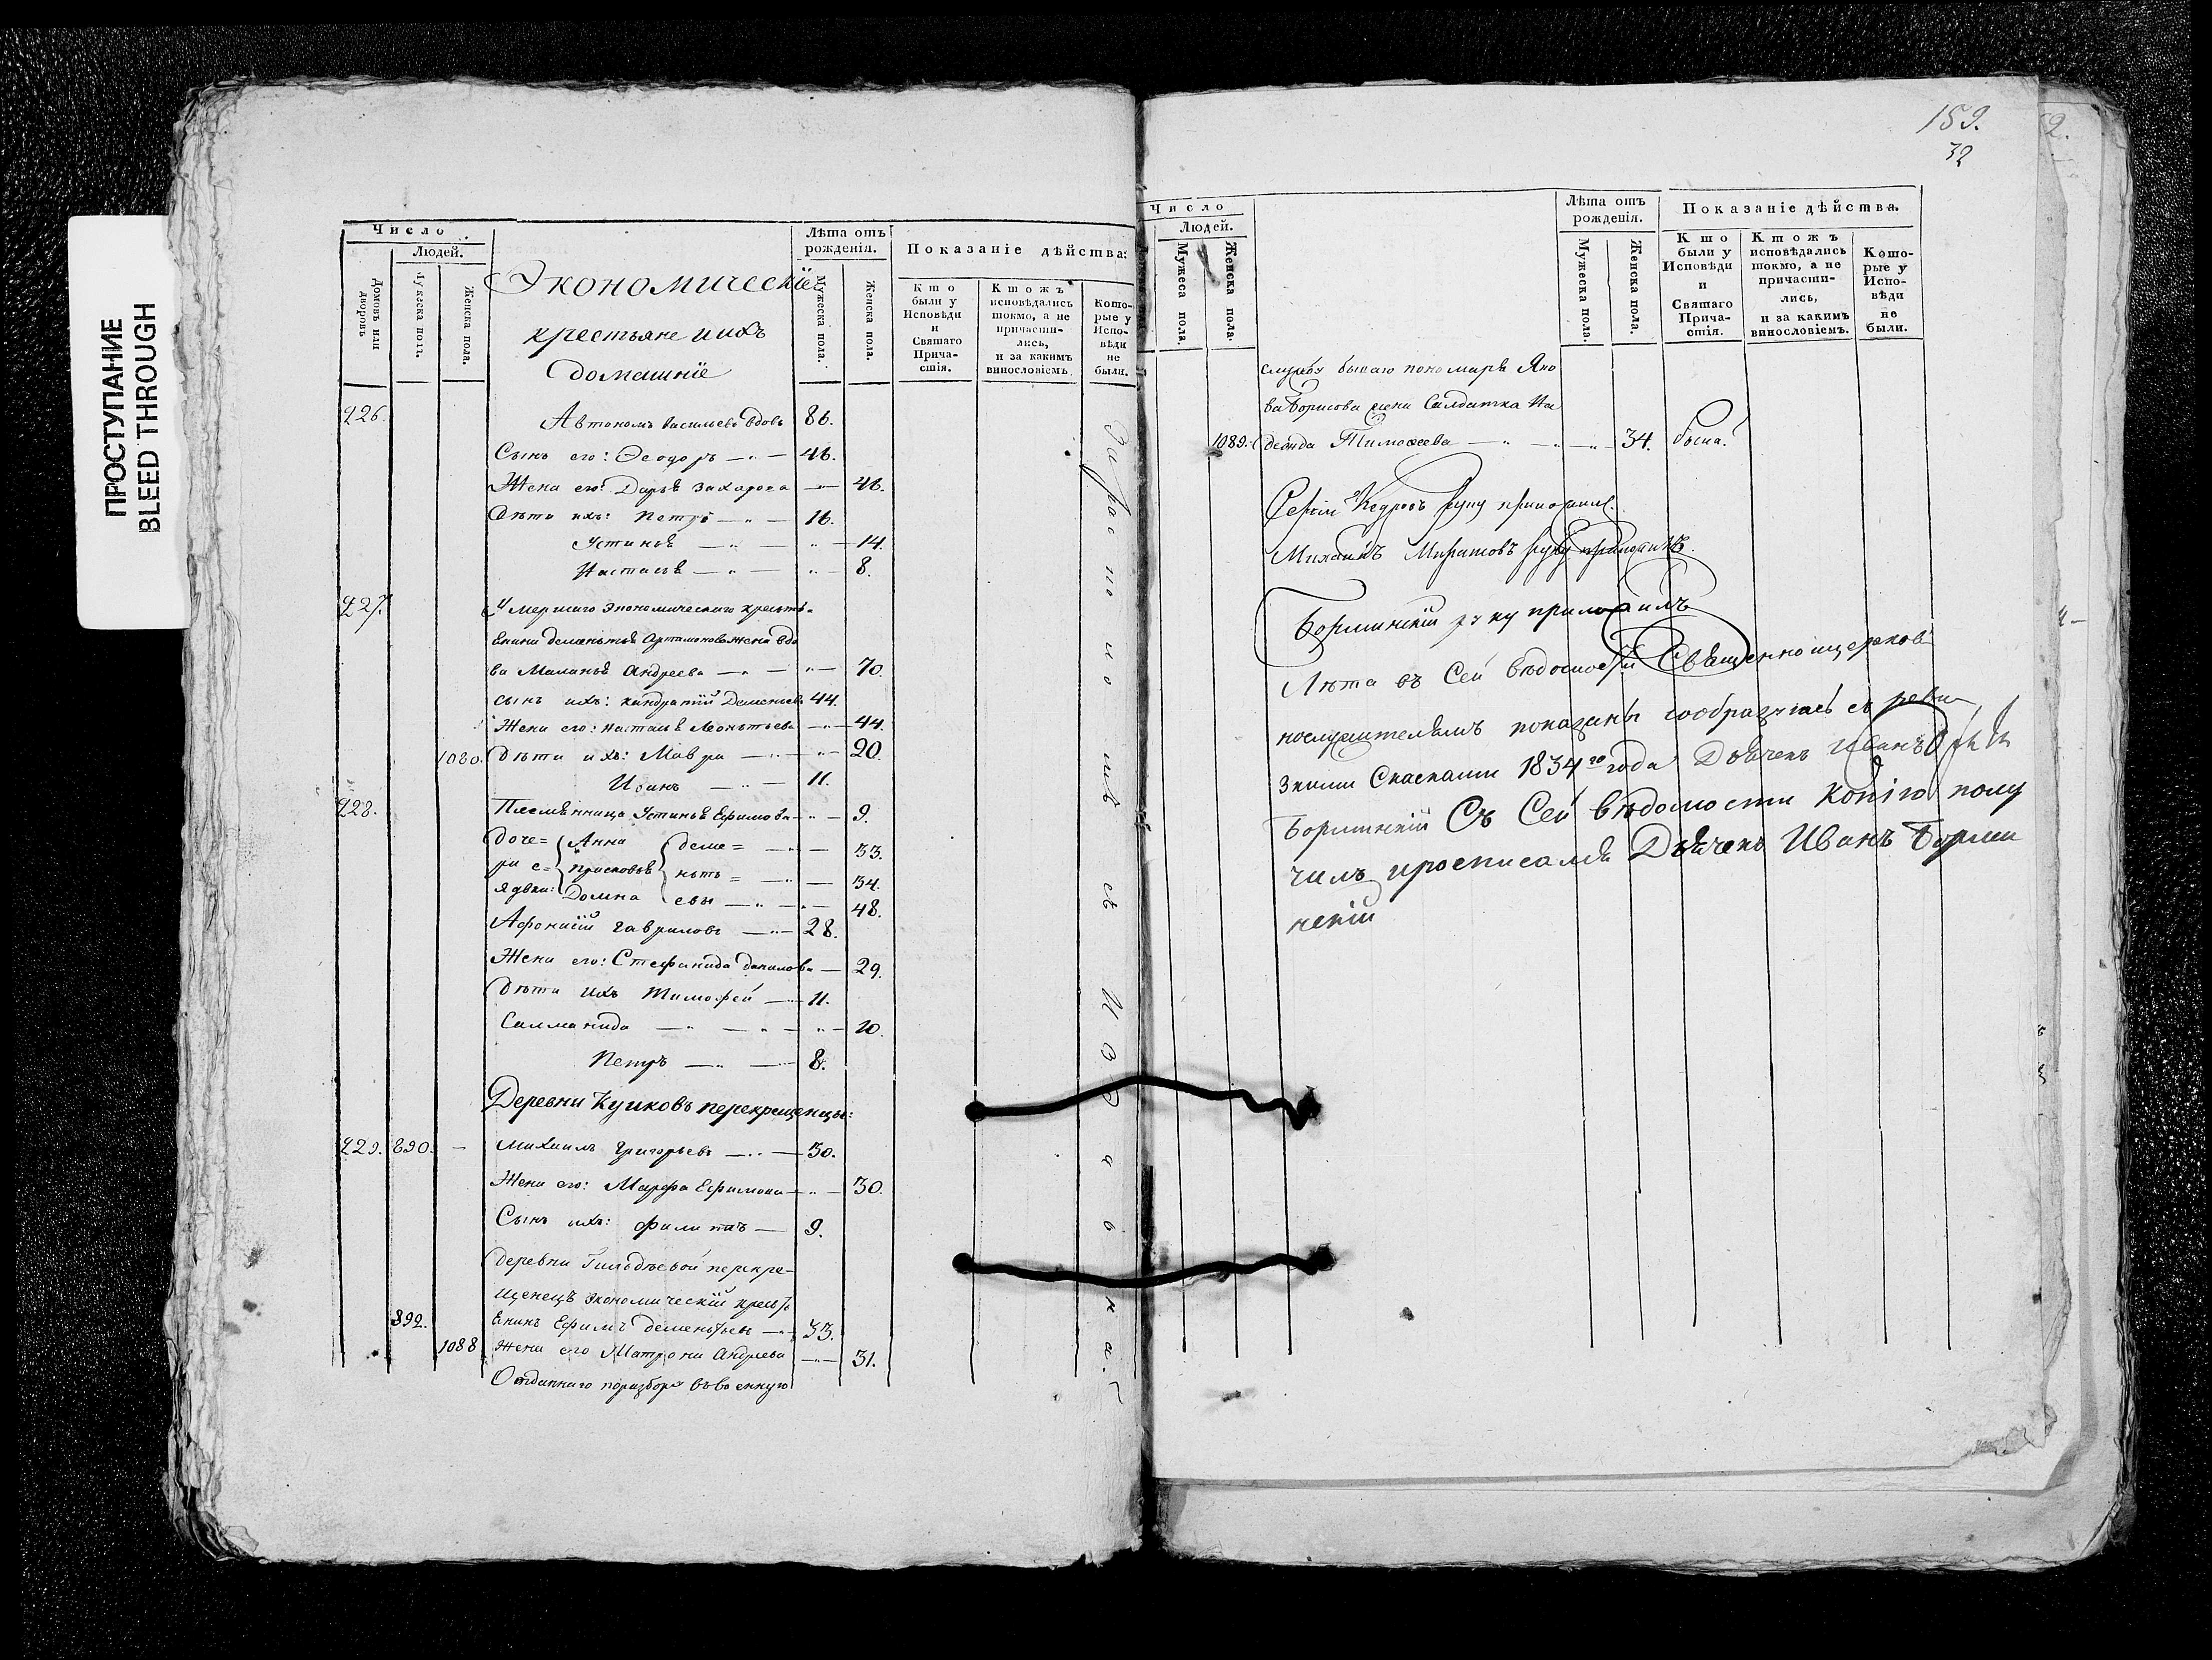 ПРОСТУПАНИЕ
BLEED THROUGH
Число
Людей.
Домовъ или дворовъ
Мужеска полъ.
Женска пола.
Экономическїе
крестьяне ихъ
домашнїе
Лѣта отъ рожденїя.
Мужеска пола.
Женска пола.
Показанїе дѣйства:
Кто были у Исповѣди и Святаго Прича-стїя.
Ктожъ исповѣдались токмо, а не причасти-лись, и за какимъ винословїемъ.
Кото-рые у Испо-вѣди не были.
926. Автономъ Васильевъ вдовъ 86.
Сынъ его: Ѳеодоръ — 46.
Жена его: Дарья Захарова — 46.
Дѣти ихъ: Петръ — 16.
Устинья — 14.
Настасья — 8.
927. Умершаго экономическаго крестья
янина Дементья Артамонова жена вдо
ва Маланья Андреева — 70.
сынъ ихъ: Кондратїй Дементьевъ 44.
Жена его: Настасья Леонтьева — 44.
1080. Дѣти ихъ: Мавра — 20.
Иванъ — 11.
928. Племянница Устинья Ефимова — 9.
Доче= Анна деме= — 33.
ри е= Прасковья нть= — 34.
я двки: Домна евы — 48.
Афонасїй Гавриловъ — 28.
Жена его: Стефанида Данилова — 29.
Дѣти ихъ Тимофей — 11.
Саламанида — 10.
Петръ — 8.
Деревни Куликовъ перекрещенцы:
929. 890. — Михаилъ Григорьевъ — 30.
Жена его: Марфа Ефимова — 30.
Сынъ ихъ: Филиппъ — 9.
Деревни перекре-
щенецъ экономическїй кресть
892. янинъ Ефимъ Дементьевъ — 33.
1088 Жена его Матрона Андреева — 31.
Отданнаго поразбору въвоенную
За расколомъ съ Издавна.
159.
32
Число
Людей.
Мужеса пола.
Женска пола.
Лѣта отъ рожденїя.
Мужеска пола.
Женска пола.
Показанїе дѣйства.
Кто были у Исповѣди и Святаго Прича-стїя.
Ктожъ исповѣдались токмо, а не причасти-лись, и за какимъ винословїемъ.
Кото-рые у Испо-вѣди не были.
службу бывшаго пономаря Яко
ва Борисова жена Салдатка На
1089. дежда Тимоѳеева — 34. была.
руку приложилъ.
Михаилъ руку приложилъ.
руку приложилъ
Лѣта въ Сей вѣдомости Священно ицерков
нослужителямъ показаны сообразуясь съ реви
зкими Сказками 1834го года Дьячекъ Иванъ
Съ Сей вѣдомости копїю полу
чилъ иросписался Дьячекъ Иванъ